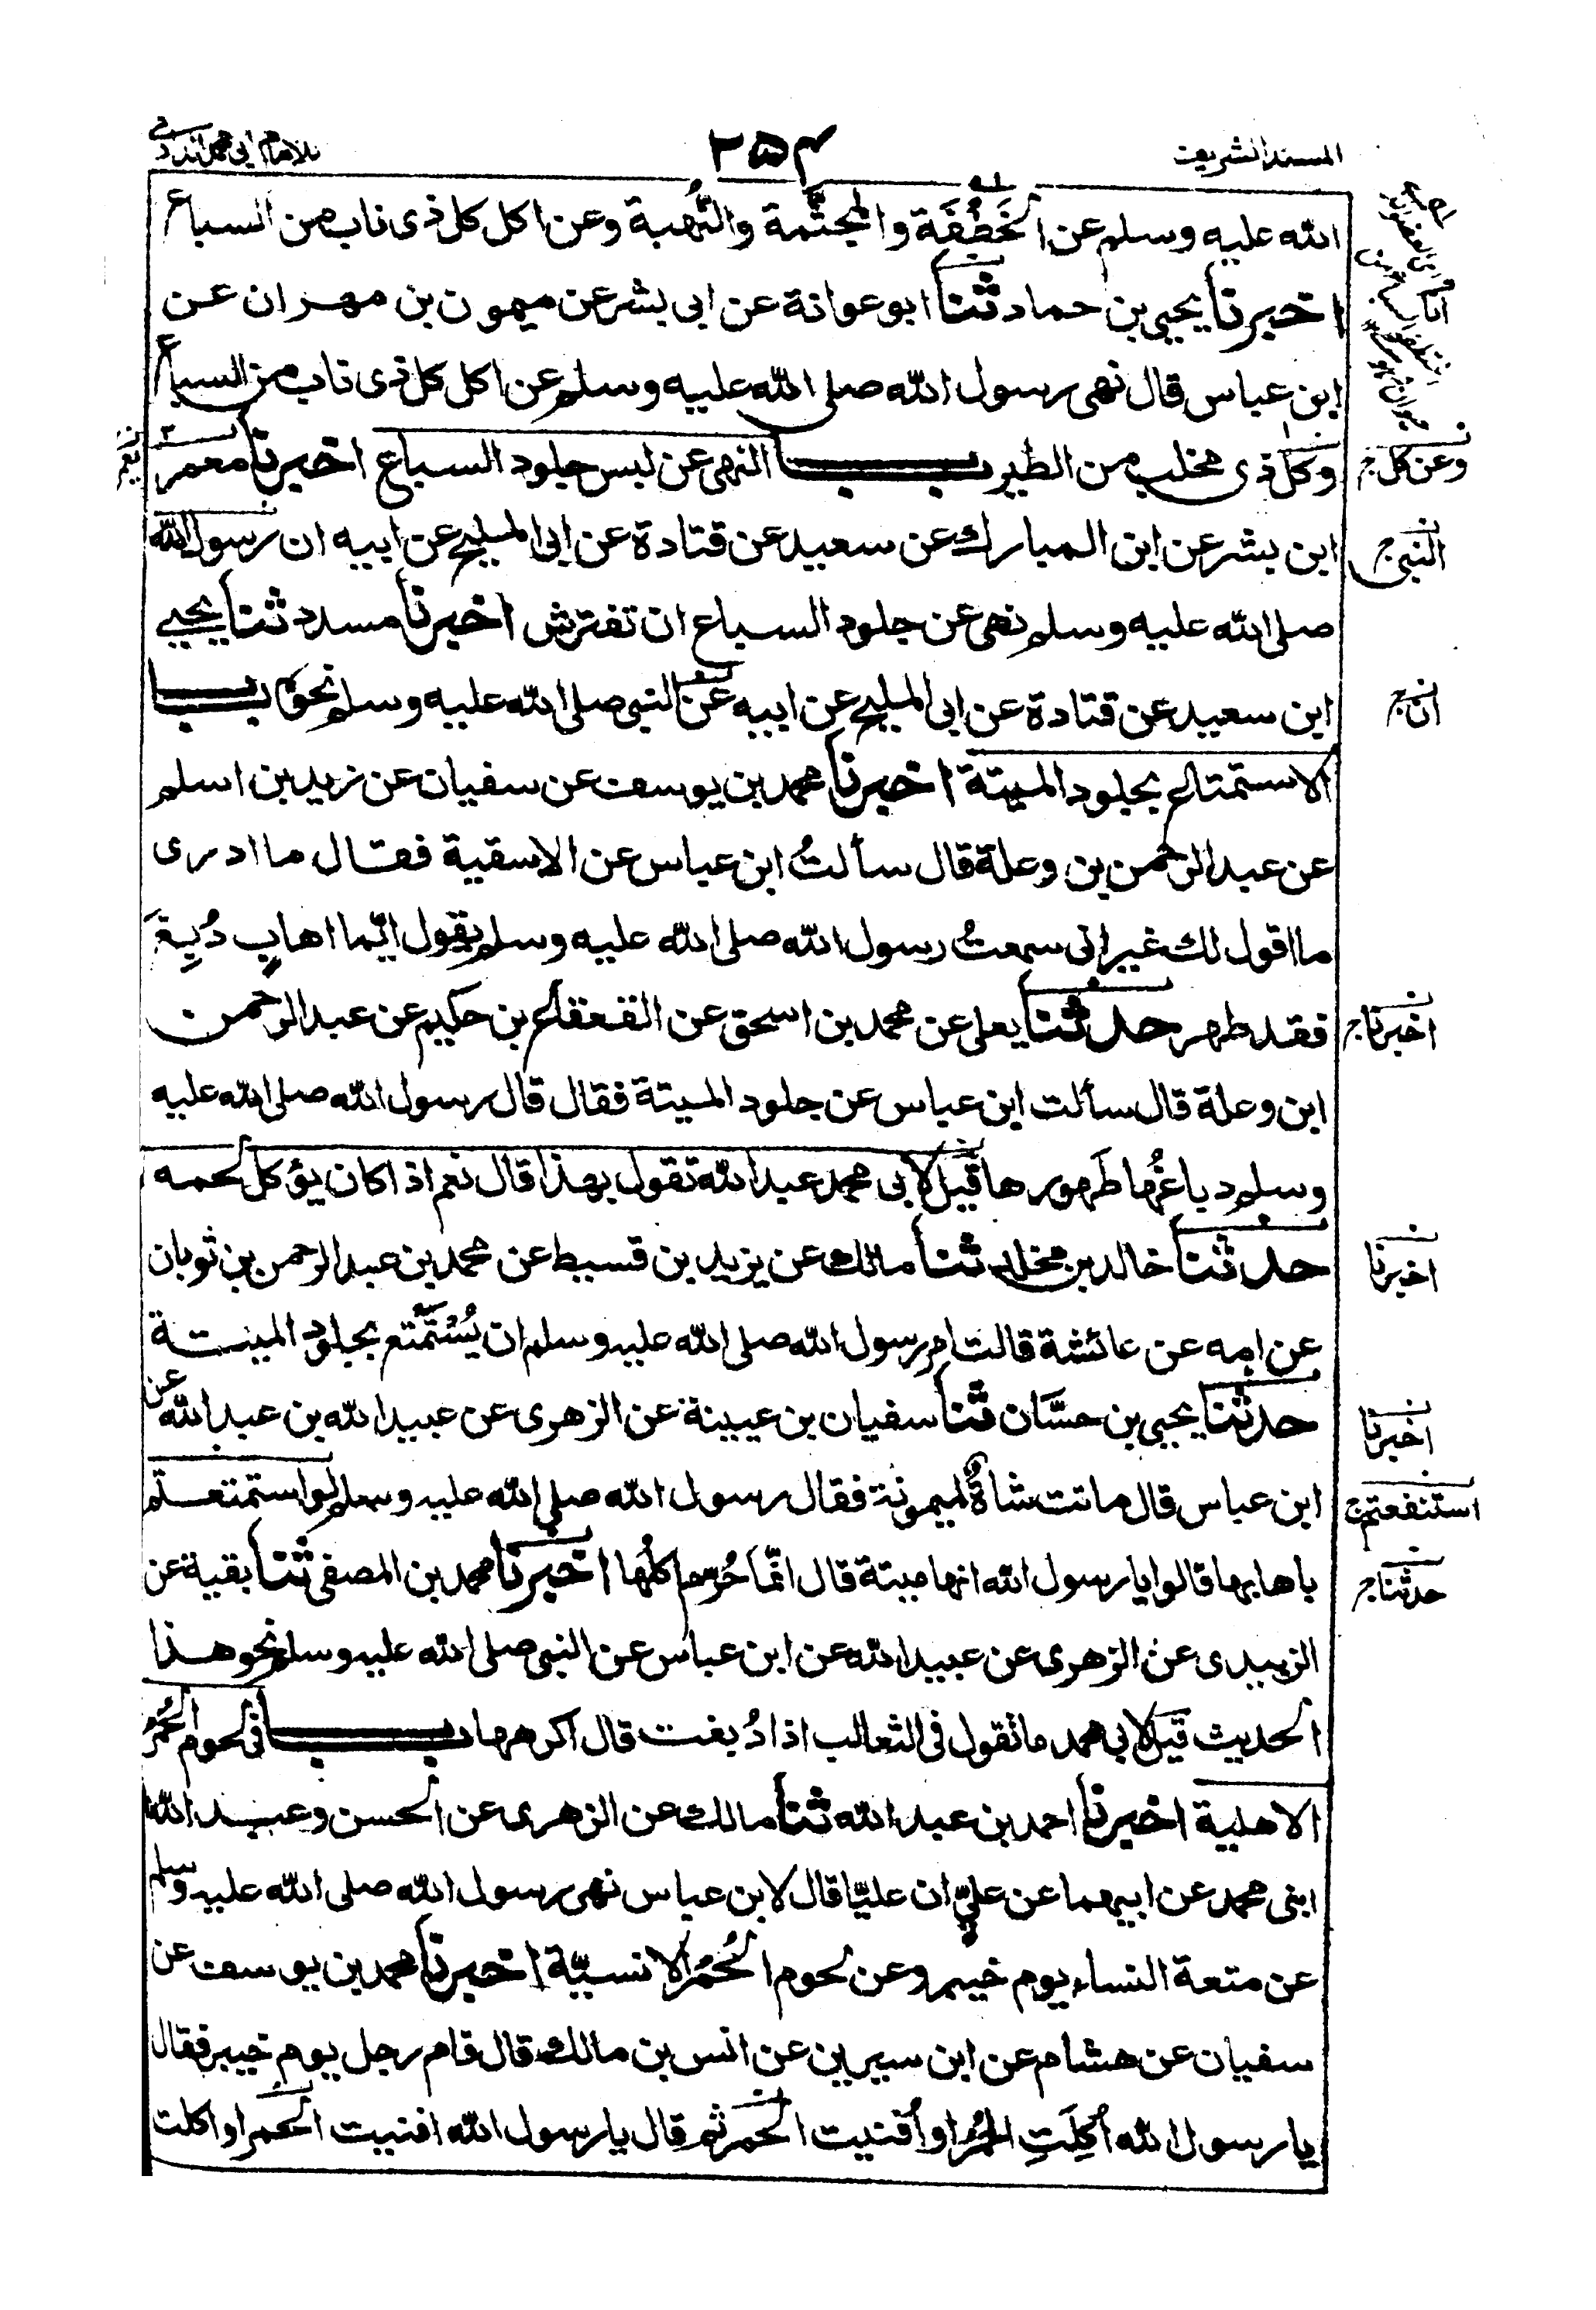 المسند الشريف
٢٥٤
للامام ابى محمد الدارمى
الله عليه وسلم عن الخَطْفَة والمجثّمة والنُّهبة وعن اكل كل ذى ناب من السباع
اخبرنا يحيى بن حماد ثنا ابو عوانة عن ابى بشر عن ميمون بن مهران عن
ابن عباس قال نهى رسول الله صلى الله عليه وسلم عن اكل كل ذى ناب من السباع
وكل ذى مخلب من الطير باب النهى عن لبس جلود السباع اخبرنا معمر
وعن كل ج
ابن بشر عن ابن المبارك عن سعيد عن قتادة عن ابى المليح عن ابيه ان رسول الله
النبى ج
صلى الله عليه وسلم نهى عن جلود السباع ان تفترش اخبرنا مسدد ثنا يحيى
ابن سعيد عن قتادة عن ابى المليح عن ابيه عن النبى صلى الله عليه وسلم نحوه باب
ان ج
الاستمتاع بجلود الميتة اخبرنا محمد بن يوسف عن سفيان عن زيد بن اسلم
عن عبد الرحمن بن وعلة قال سألتُ ابن عباس عن الاسقية فقال ما ادرى
ما اقول لك غير انى سمعتُ رسول الله صلى الله عليه وسلم يقول ايّما اهابٍ دُبِغَ
فقد طهر حدثنا يعلى عن محمد بن اسحق عن القعقاع بن حكيم عن عبد الرحمن
اخبرنا ج
ابن وعلة قال سألت ابن عباس عن جلود الميتة فقال قال رسول الله صلى الله عليه
وسلم دباغُها طَهورها قيل لابى محمد عبد الله تقول بهذا قال نعم اذا كان يؤكل لحمه
حدثنا خالد بن مخلد ثنا مالك عن يزيد بن قسيط عن محمد بن عبد الرحمن بن ثوبان
اخبرنا
عن امه عن عائشة قالت امر رسول الله صلى الله عليه وسلم ان يُسْتَمْتَع بجلود الميتة
حدثنا يحيى بن حسَّان ثنا سفيان بن عيينة عن الزهرى عن عبيد الله بن عبد الله عن
اخبرنا
ابن عباس قال ماتت شاةٌ لميمونة فقال رسول الله صلى الله عليه وسلم لو استمتعتم
استنفعتم ج
باهابها قالوا يا رسول الله انها ميتة قال انّما حُرّم اكلُها اخبرنا محمد بن المصفى ثنا بقية عن
حدثنا ج
الزبيدى عن الزهرى عن عبيد الله عن ابن عباس عن النبى صلى الله عليه وسلم نحو هذا
الحديث قيل لابى محمد ما تقول فى الثعالب اذا دُبغت قال اكرهها باب فى لحوم الحُمُر
الاهلية اخبرنا احمد بن عبد الله ثنا مالك عن الزهرى عن الحسن وعبد الله
ابنى محمد عن ابيهما عن علىٍّ ان عليًّا قال لابن عباس نهى رسول الله صلى الله عليه وسلم
عن متعة النساء يوم خيبر وعن لحوم الحُمُر الانسيّة اخبرنا محمد بن يوسف عن
سفيان عن هشام عن ابن سيرين عن انس بن مالك قال قام رجل يوم خيبر فقال
يا رسول الله أُكِلَتِ الحُمُر او أُفنيت الحمر ثم قال يا رسول الله افنيت الحمر او اكلت